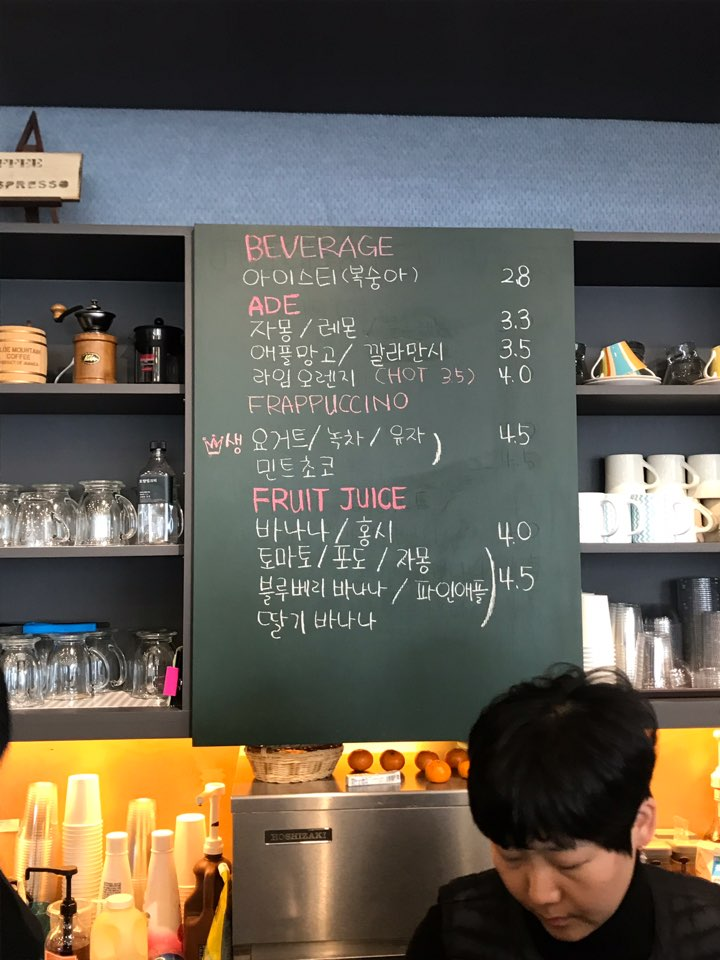 FFEE
SPRESSO
BEVERAGE
아이스티(복숭아) 2.8
ADE
자몽 / 레몬 3.3
애플망고 / 깔라만시 3.5
라임오렌지 (HOT 3.5) 4.0
FRAPPUCCINO
생 요거트 / 녹차 / 유자 4.5
민트초코
FRUIT JUICE
바나나 / 홍시 4.0
토마토 / 포도 / 자몽
블루베리 바나나 / 파인애플 4.5
딸기 바나나
MOUNTAIN
COFFEE
HOSHIZAKI